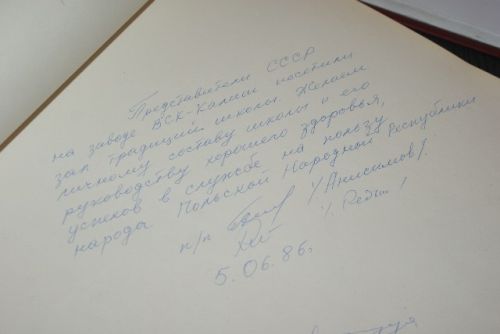 Представители СССР
на заводе ВСК-Калиш посетили
зал традиций школы. Желаем
личному составу школы и его
руководству хорошего здоровья,
успехов в службе на пользу
народа Польской Народной Республики
п/п /Анисимов/.
5.06.86.